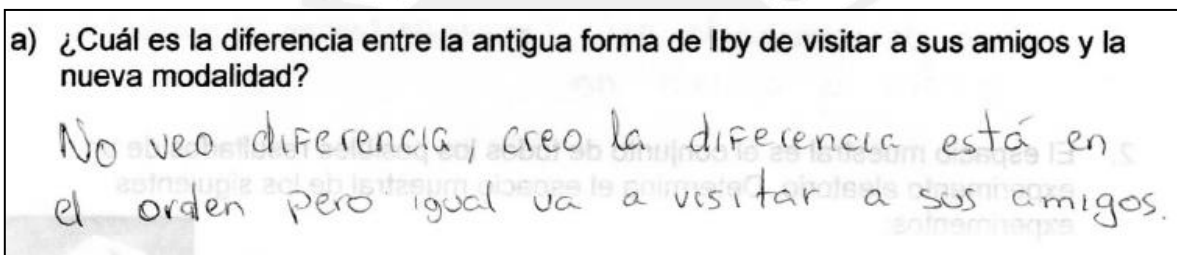 a) ¿Cuál es la diferencia entre la antigua forma de Iby de visitar a sus amigos y la
nueva modalidad?
No veo diferencia, creo la diferencia está en
el orden pero igual va a visitar a sus amigos.